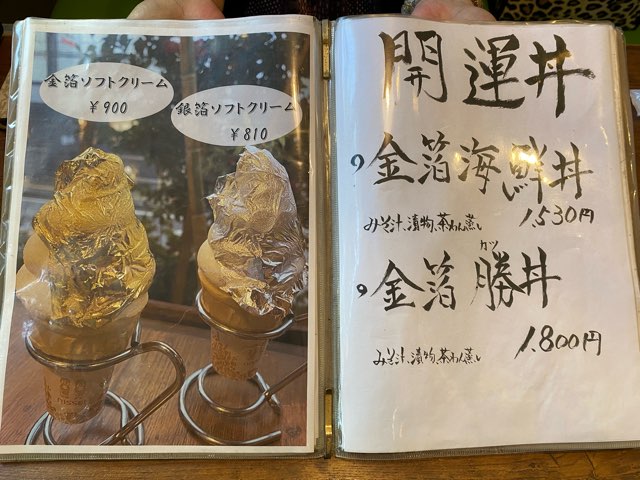 金箔ソフトクリーム
￥900
銀箔ソフトクリーム
￥810
開運丼
金箔海鮮丼
みそ汁、漬物、茶わん蒸し
1,530円
金箔勝丼
カツ
みそ汁、漬物、茶わん蒸し
1,800円